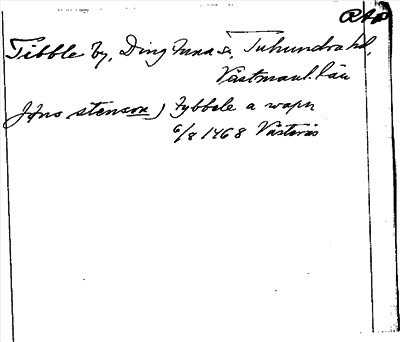 RAp
Tibble by, Dingtuna sn, Tuhundra hd,
Västmanl. län
Jöns stenson) Tybbele a wapn
6/8 1468 Västerås